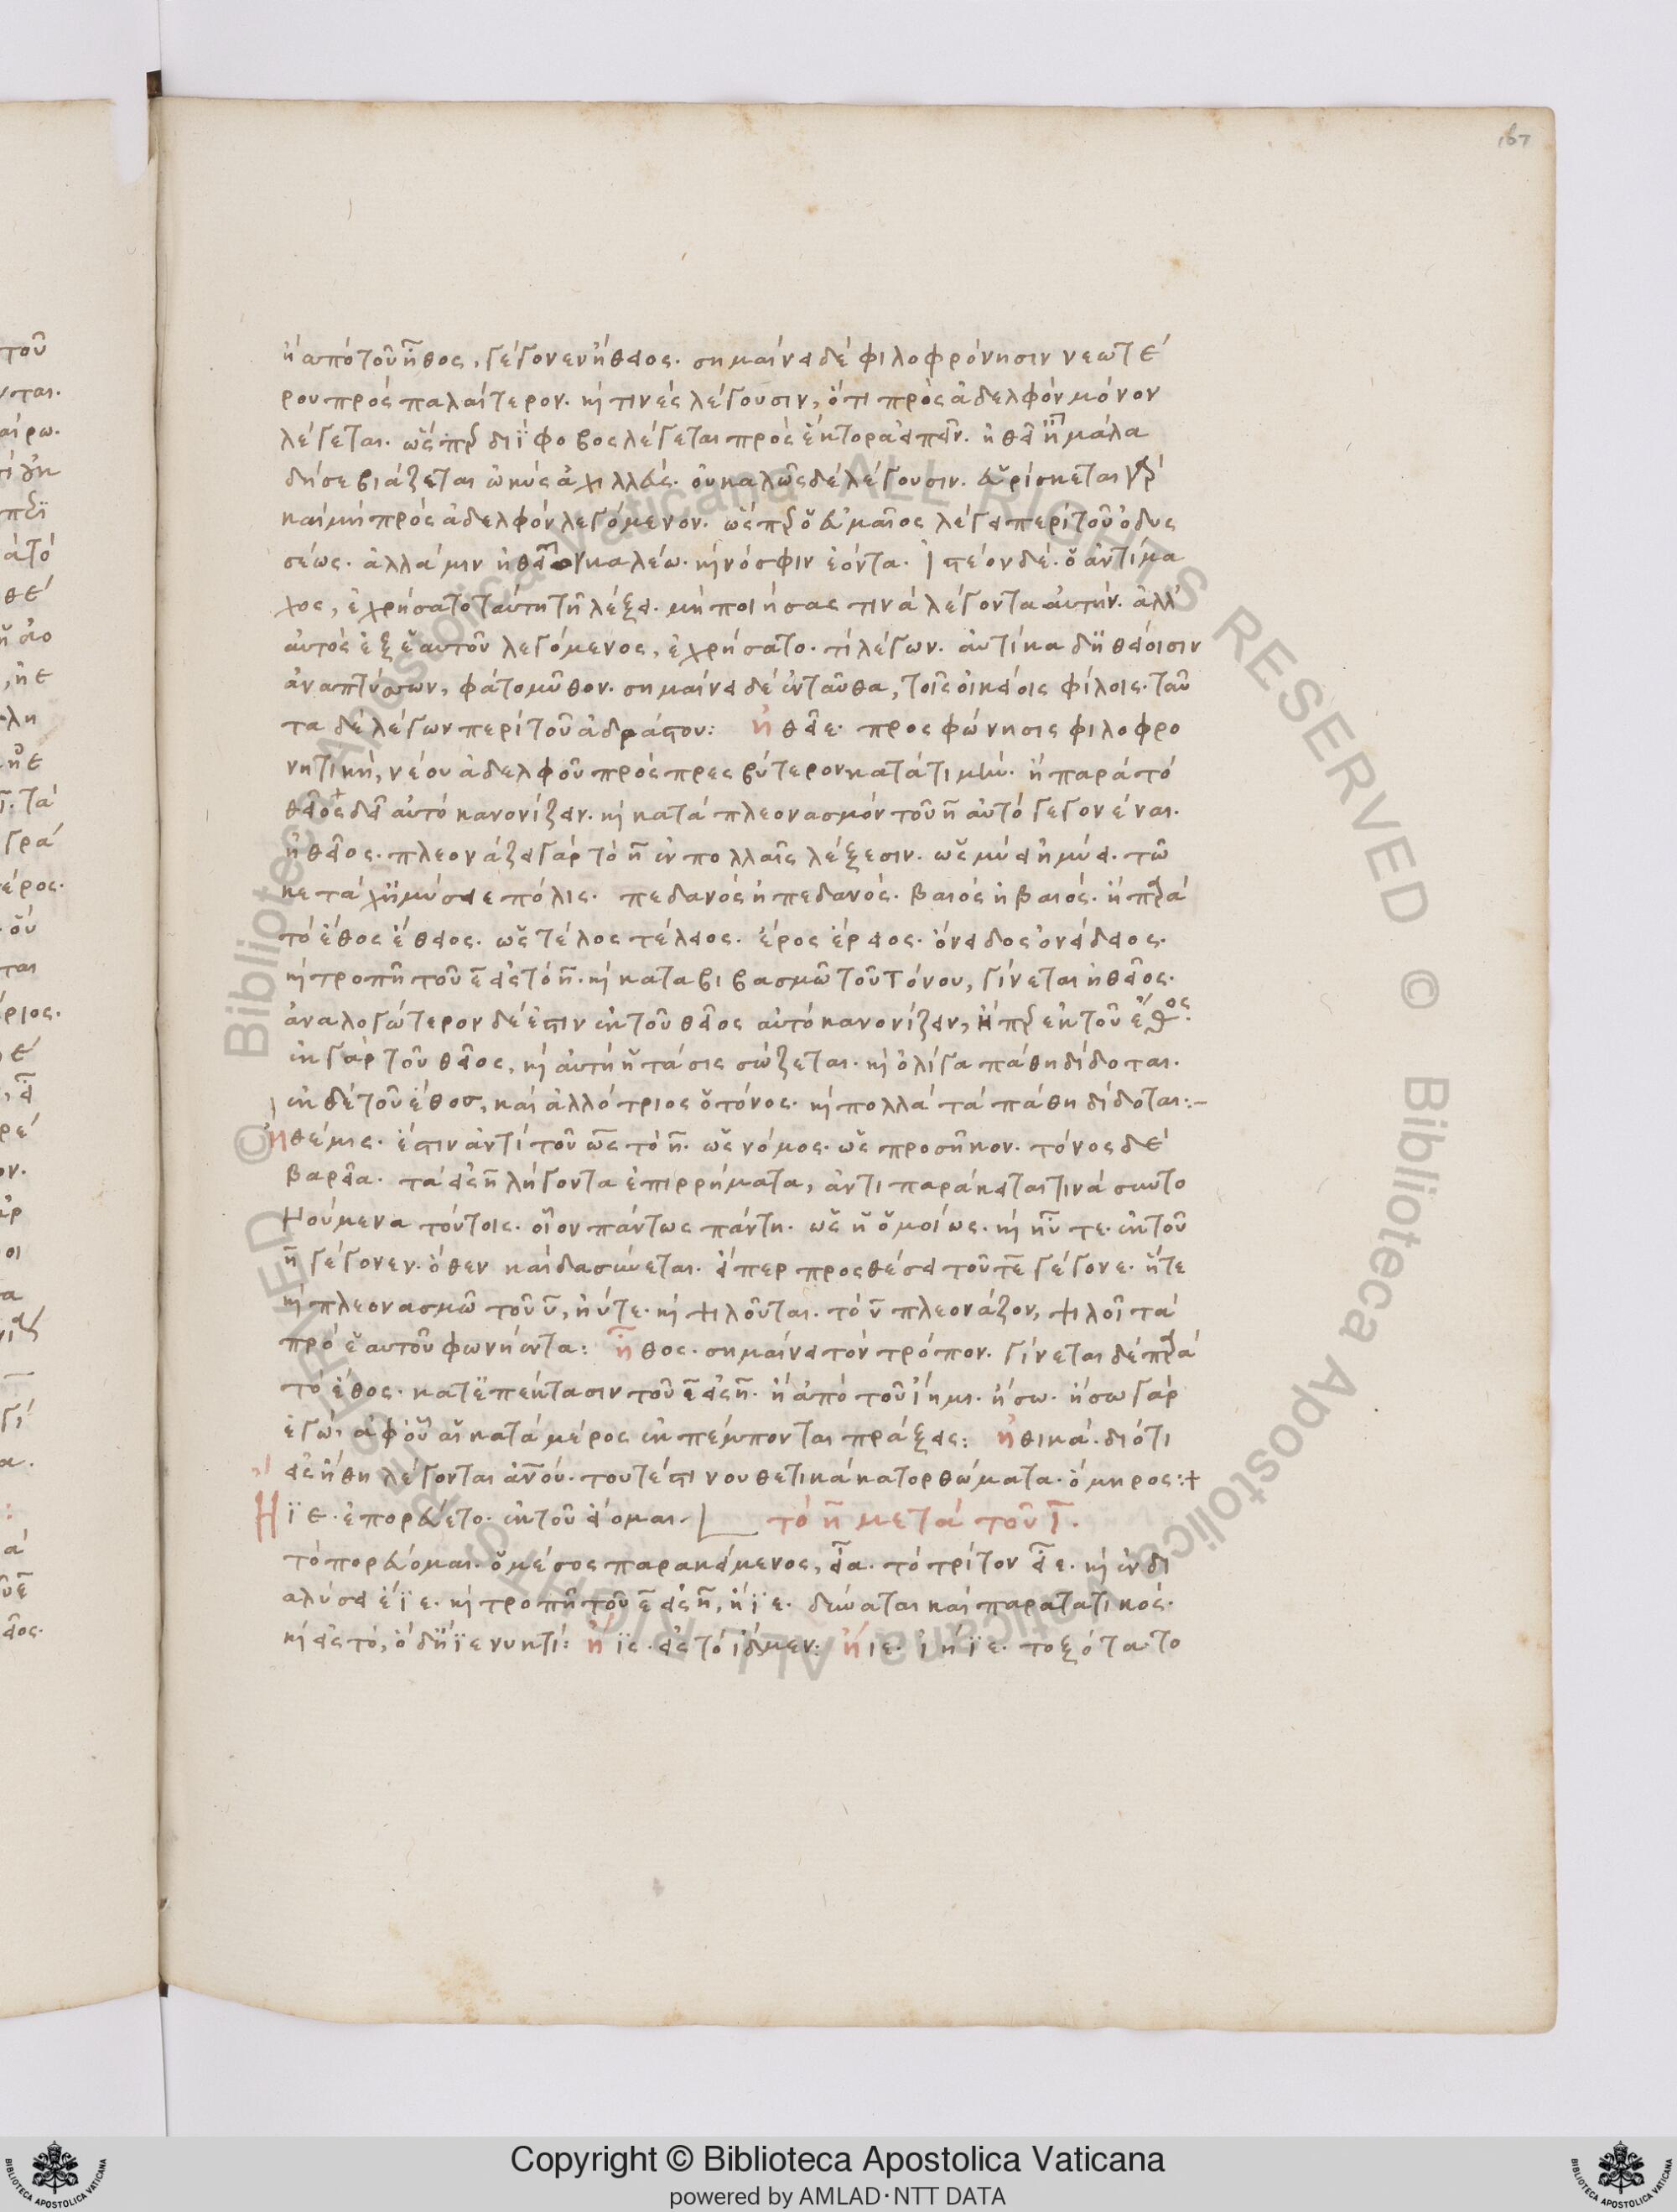 167
ἢ ἀπὸ τοῦ ἦθος, γέγονεν ἠθεῖος. σημαίνει δὲ φιλοφρόνησιν νεωτέ
ρου πρὸς παλαίτερον. καί τινές λέγουσιν, ὅτι πρὸς ἀδελφὸν μόνον
λέγεται. ὥσπερ δηΐφοβος λέγεται πρὸς ἕκτορα εἰπεῖν. ἠθεῖ ἢ μάλα
δή σε βιάζεται ὠκύς ἀχιλλεύς. οὐ καλῶς δὲ λέγουσιν. εὑρίσκεται γὰρ
καὶ μὴ πρὸς ἀδελφόν λεγόμενον. ὥσπερ ὁ εὔμαιος λέγει περὶ τοῦ ὀδυς
σέως. ἀλλά μιν ἠθεῖον καλέω. καὶ νόσφιν ἐόντα. ἰστέον δέ. ὁ ἀντίμα
χος, ἐχρήσατο ταύτη τῆ λέξει. μὴ ποιήσας τινά λέγοντα αὐτήν. ἀλλ'
αὐτὸς ἐξ ἑαυτοῦ λεγόμενος, ἐχρήσατο. τί λέγων. αὐτίκα δ' ἠθείοισιν
ἀναπτύσων, φάτο μῦθον. σημαίνει δὲ ἐνταῦθα, τοῖς οἰκείοις φίλοις. ταῦ
τα δὲ λέγων περὶ τοῦ ἀδράστου: ἠθεῖε. προσφώνησις φιλοφρο
νητική, νέου ἀδελφοῦ πρὸς πρεσβύτερον κατὰ τιμήν. ἢ παρὰ τὸ
θεῖος δεῖ αὐτὸ κανονίζειν. καὶ κατὰ πλεονασμόν τοῦ η αὐτὸ γεγονέναι.
ἠθεῖος. πλεονάζει γάρ τὸ η ἐν πολλαῖς λέξεσιν. ὡς μύει ἠμύει. τῶ
κε τάχ' ἠμύσειε πόλις. πεδανός ἠπεδανός. βαιός ἠβαιός. ἢ παρὰ
τὸ ἔθος ἔθειος. ὡς τέλος τέλειος. ἔρος ἔρειος. ὄνειδος ὀνείδειος.
καὶ τροπῆ τοῦ ε εἰς τὸ η. καὶ καταβιβασμῶ τοῦ τόνου, γίνεται ἠθεῖος.
ἀναλογώτερον δέ ἐστιν ἐκ τοῦ θεῖος αὐτὸ κανονίζειν, ἤπερ ἐκ τοῦ ἔθος.
ἐκ γάρ τοῦ θεῖος, καὶ αὐτὴ ἡ τάσις σώζεται. καὶ ὀλίγα πάθη δίδοται.
ἐκ δὲ τοῦ ἔθος, καὶ ἀλλότριος ὁ τόνος. καὶ πολλά τὰ πάθη δίδοται:-
ἡ θέμις. ἔστιν ἀντὶ τοῦ ως τὸ η. ὡς νόμος. ὡς προσῆκον. τόνος δέ
βαρεῖα. τὰ εἰς η λήγοντα ἐπιρρήματα, ἀντιπαράκειταί τινά συντο
νούμενα τούτοις. οἷον πάντως πάντη. ὡς ἡ ὁμοίως. καὶ ηὖτε. ἐκ τοῦ
η γέγονεν. ὅθεν καὶ δασύνεται. εἴπερ προσθέσει τοῦ τε γέγονε. ἥτε
καὶ πλεονασμῶ τοῦ υ, ἠύτε. καὶ ψιλοῦται. τὸ υ πλεονάζον, ψιλοῖ τὰ
πρὸ ἑαυτοῦ φωνήεντα: ἦθος. σημαίνει τόν τρόπον. γίνεται δὲ παρὰ
τὸ ἔθος. κατ' ἐπέκτασιν τοῦ ε εἰς η. ἢ ἀπὸ τοῦ ἵημι. ἥσω. ἥσω γάρ
ἐγώ. ἀφ' οὗ αἱ κατὰ μέρος ἐκπέμπονται πράξεις: ἠθικά. διότι
εἰς ἤθη λέγονται ἀνου. τουτέστι νουθετικὰ κατορθώματα. ὅμηρος:+
Ηϊε. ἐπορεύετο. ἐκ τοῦ εἴομαι. τὸ η μετά τοῦ ι.
τὸ πορεύομαι. ὁ μέσος παρακείμενος, εἶα. τὸ τρίτον εἶε. καὶ ἐν δι
αλύσει ἔϊε. καὶ τροπῆ τοῦ ε εἰς η, ἤϊε. δύναται καὶ παρατατικός.
καὶ εἰς τό, ὁ δ' ἤϊε νυκτί: ἤϊε. εἰς τὸ ἴδμεν: ἤιε. ἰήϊε. τοξότα. το
Copyright © Biblioteca Apostolica Vaticana
powered by AMLAD·NTT DATA